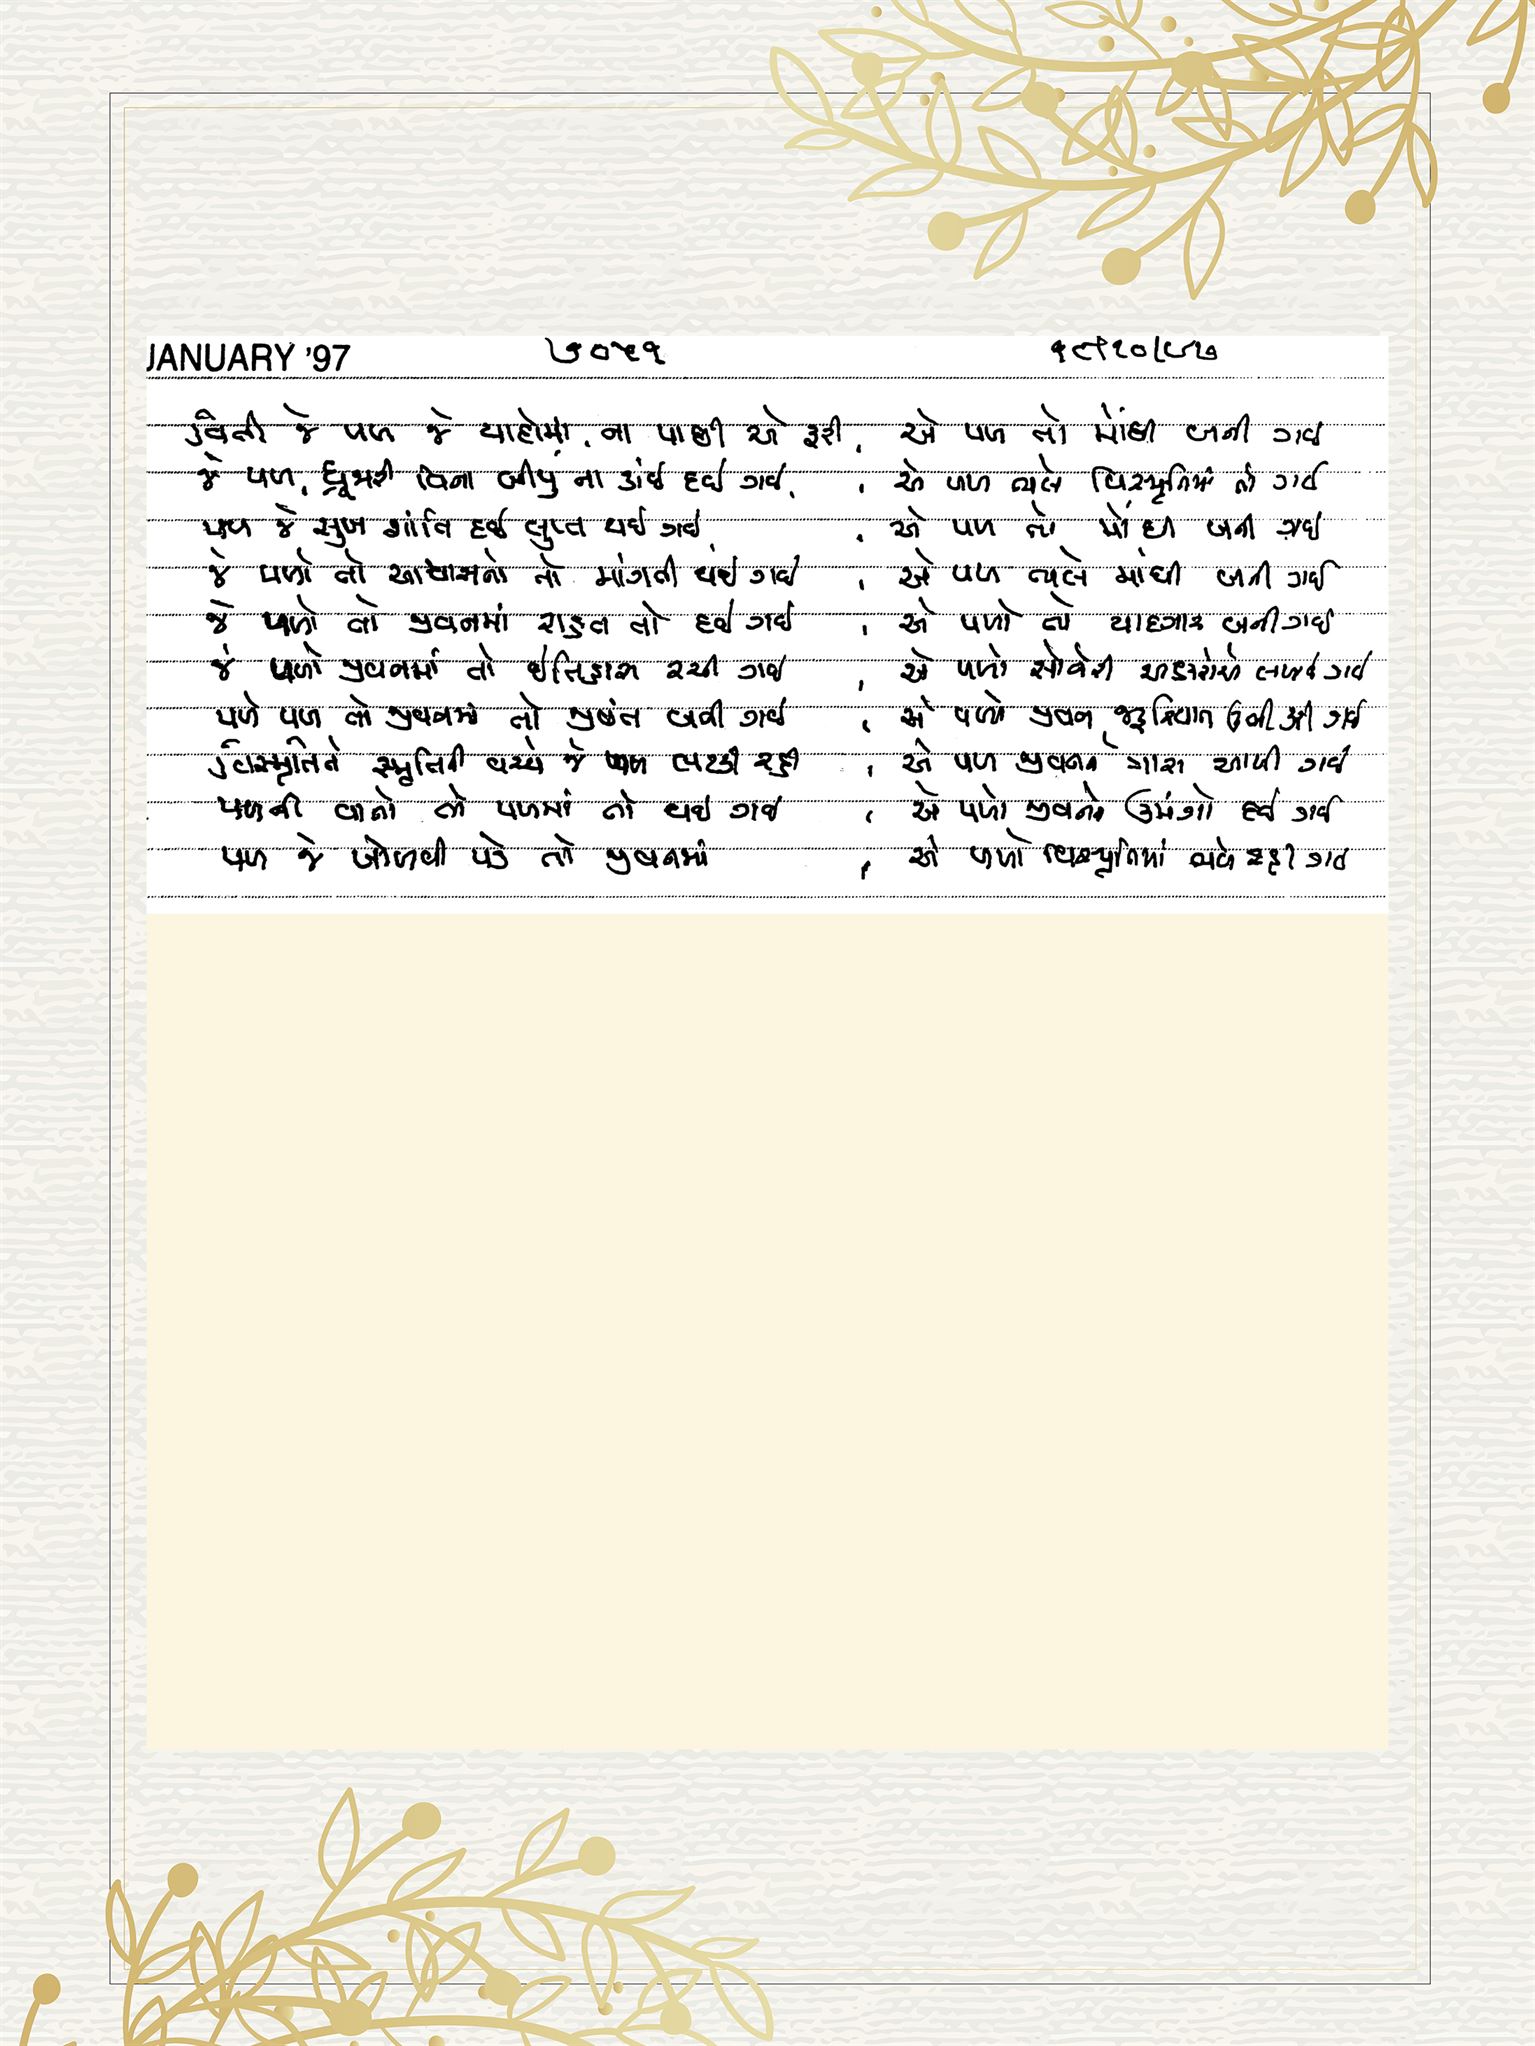 JANUARY '97 ૭૦૫૧
વિતી જે પળ જે યાદોમાં, ના પાછી એ ફરી, એ પળ તો મોંઘી બની ગઈ
જે પળ, ધ્રૂજારી વિના બીજું ના કાંઈ દઈ ગઈ, એ પળ વિસ્મૃતિમાં તો ગઈ
પળ જે સુખ શાંતિ દઈ લુપ્ત થઈ ગઈ, એ પળ તો મોંઘી બની ગઈ
જે પળો તો માંગતી થઈ ગઈ, એ પળ મોંઘી બની ગઈ
જે પળો તો જીવનમાં રાહત તો દઈ ગઈ, એ પળો તો યાદગાર બની ગઈ
જે પળો જીવનમાં તો ઈતિહાસ રચી ગઈ, એ પળો સોનેરી ગઈ
પળે પળ તો જીવનમાં તો જીવંત બની ગઈ, એ પળો જીવન ગઈ
વિસ્મૃતિને સ્મૃતિની વચ્ચે જે પળ લટકી રહી, એ પળ જીવનને ત્રાસ આપી ગઈ
પળની વાતો તો પળમાં તો થઈ ગઈ, એ પળો જીવનને ઉમંગો દઈ ગઈ
પળ જે ખોળવી પડે તો જીવનમાં, એ પળો વિસ્મૃતિમાં રહી ગઈ